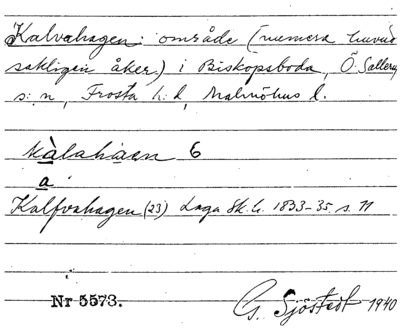 Kalvahagen: område (numera huvud
sakligen åker) i Biskopsboda, Ö. Sallerup
s:n, Frosta h:d, Malmöhus l.
kàlahaan 6
a
Kalfvahagen (23) Laga Sk. h. 1833-35 s. 11
Nr 5573.
G. Sjöstedt 1940